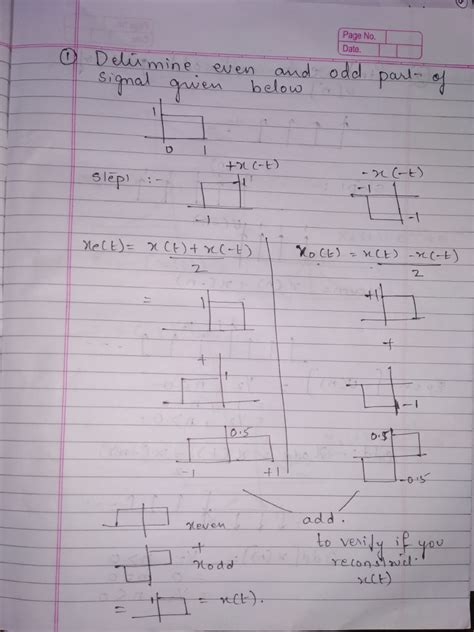 Page No.
Date.
① Determine even and odd part of
signal given below
1
0 1
Step1 :-
+x(-t)
1
-1
-x(-t)
-1
-1
xe(t) = x(t) + x(-t)
2
xo(t) = x(t) - x(-t)
2
=
1
+1
+
+
1
-1
0.5
-1 +1
0.5
-0.5
xeven
add.
+
xodd
to verify if you
reconstruct
x(t)
= 1 = x(t).